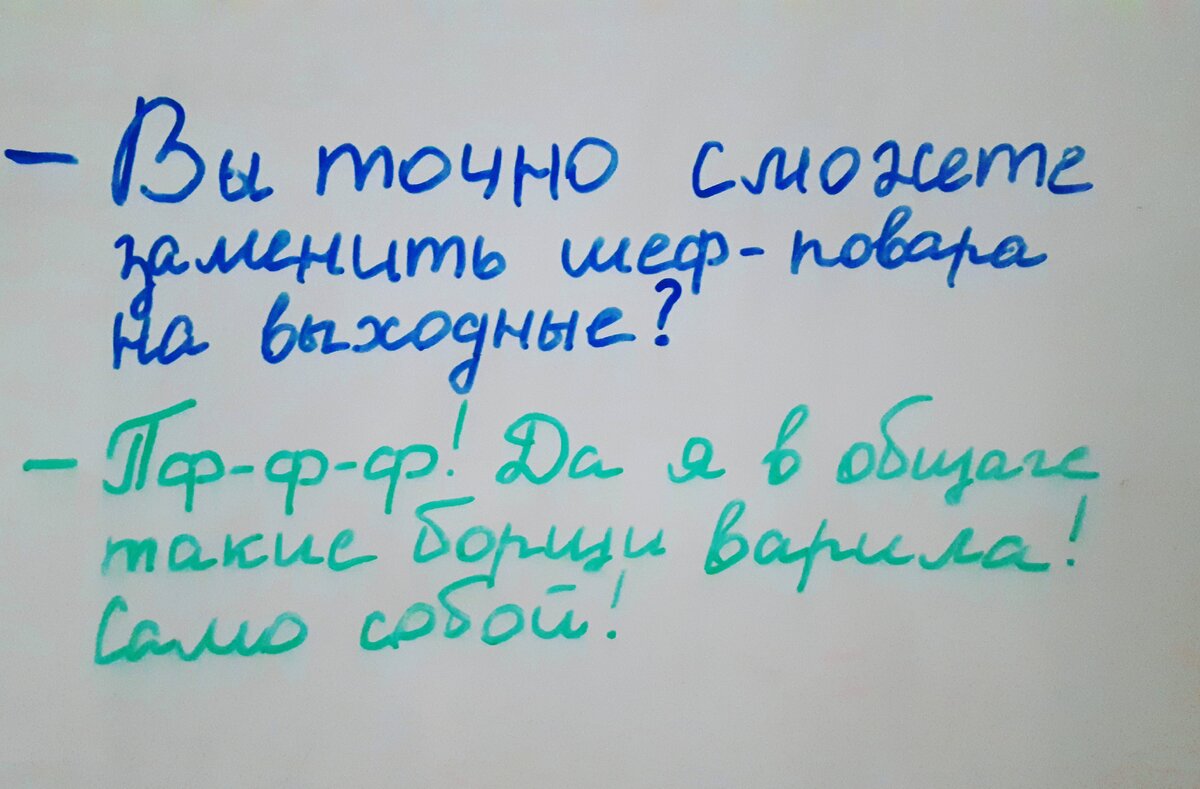 – Вы точно сможете
заменить шеф-повара
на выходные?
– Пф-ф-ф! Да я в общаге
такие борщи варила!
Само собой!